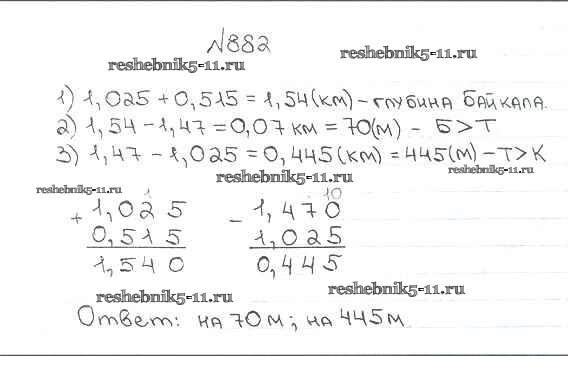 №882
reshebnik5-11.ru reshebnik5-11.ru
1) 1,025 + 0,515 = 1,54 (км) – глубина Байкала.
2) 1,54 – 1,47 = 0,07 км = 70 (м) – Б > Т
3) 1,47 – 1,025 = 0,445 (км) = 445 (м) – Т > К
reshebnik5-11.ru reshebnik5-11.ru reshebnik5-11.ru
1 10
+ 1,025 – 1,470
0,515 1,025
1,540 0,445
reshebnik5-11.ru reshebnik5-11.ru
Ответ: на 70 м; на 445 м